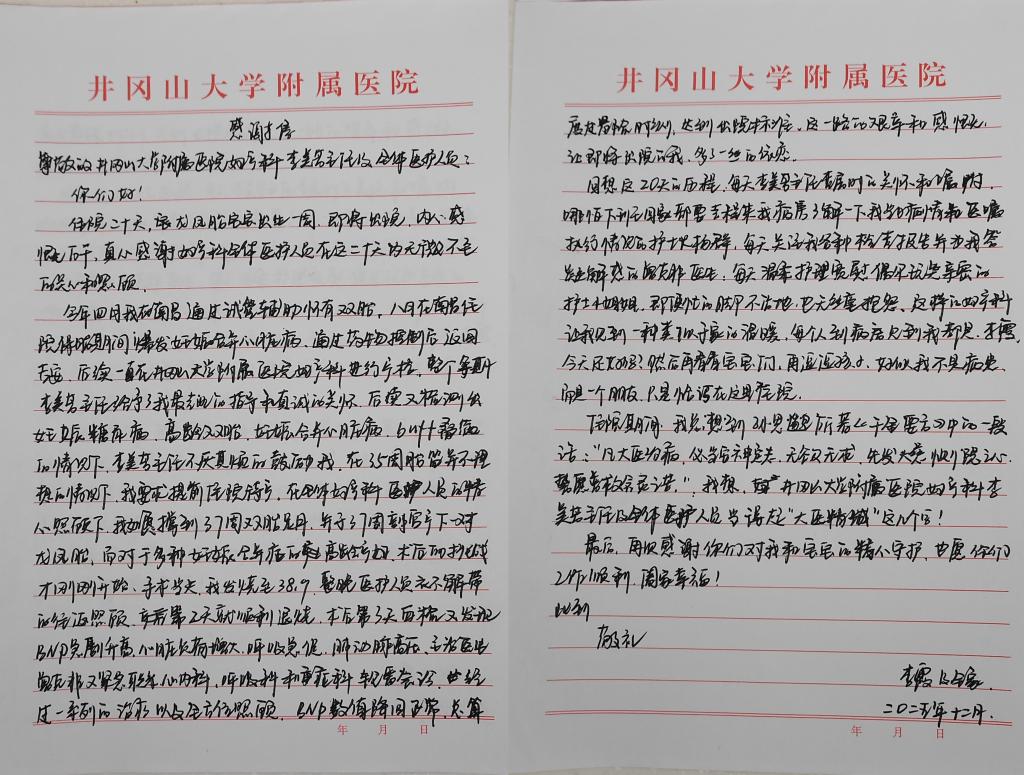 井冈山大学附属医院
感谢信
尊敬的井冈山大学附属医院妇产科李美芳主任及全体医护人员：
你们好！
住院二十天，距龙凤胎宝宝出生一周，即将出院，内心感
慨万千，真心感谢妇产科全体医护人员在这二十天内无微不至
的关心和照顾。
今年四月我在南昌通过试管辅助怀有双胎，八月在南昌住
院保胎期间爆发妊娠合并心脏病，通过药物控制后返回
吉安，后续一直在井冈山大学附属医院妇产科进行产检，整个孕期
李美芳主任给予了我最专业的指导和真诚的关怀。后续又检测出
妊娠糖尿病，高龄双胎，妊娠合并心脏病，
的情况下，李美芳主任不厌其烦的鼓励我，在35周胎监并不理
想的情况下，我要求提前住院待产，在全体妇产科医护人员的精
心照顾下，我如愿撑到37周双胎足月，并于37周剖宫产下一对
龙凤胎，而对于多种妊娠合并病的高龄产妇，术后的挑战
才刚刚开始，手术当天，我发烧至38.9，整晚医护人员衣不解带
的住证照顾，产后第2天就顺利退烧，术后第3天血检又发现
BNP急剧升高，心脏长荷增大，呼吸急促，肺动脉高压，主治医生
又紧急联系心内科，呼吸科和重症科轮番会诊，也经
过一系列的治疗以及全方位照顾，BNP数值降回正常，总算
年 月 日
井冈山大学附属医院
时刻，达到出院标准。这一路的艰辛和感慨，
让即将出院的我，多了一丝的伤感。
回想这20天的历程，每天李美芳主任查房时的关怀和嘱咐，
哪怕下班回家都要去探集我病房了解一下我当日病情和医嘱
执行情况的护士长杨群，每天关注我各种检查报告并为我答
疑解惑的医生，每天温柔护理宽慰偶尔谈笑亲密的
护士小姐姐，即便忙的脚不沾地，也无丝毫抱怨，这样的妇产科
让我见到一种类似于家的温暖，每个人到病房见到我都是：李霞，
今天还好吗？然后再看看宝宝们，再逗逗孩子，好似我不是病患，
而是一个朋友，只是恰巧在这里住院。
住院期间，我总想到孙思邈所著《千金要方》中的一段
话：“凡大医治病，必当安神定志，无欲无求，先发大慈恻隐之心，
誓愿普救含灵之苦。”我想，井冈山大学附属医院妇产科李
美芳主任及全体医护人员当得起“大医精诚”这几个字！
最后，再次感谢你们对我和宝宝的精心守护，也愿你们
工作顺利，阖家幸福！
此致
敬礼
李霞及全家
二〇二五年十二月
年 月 日